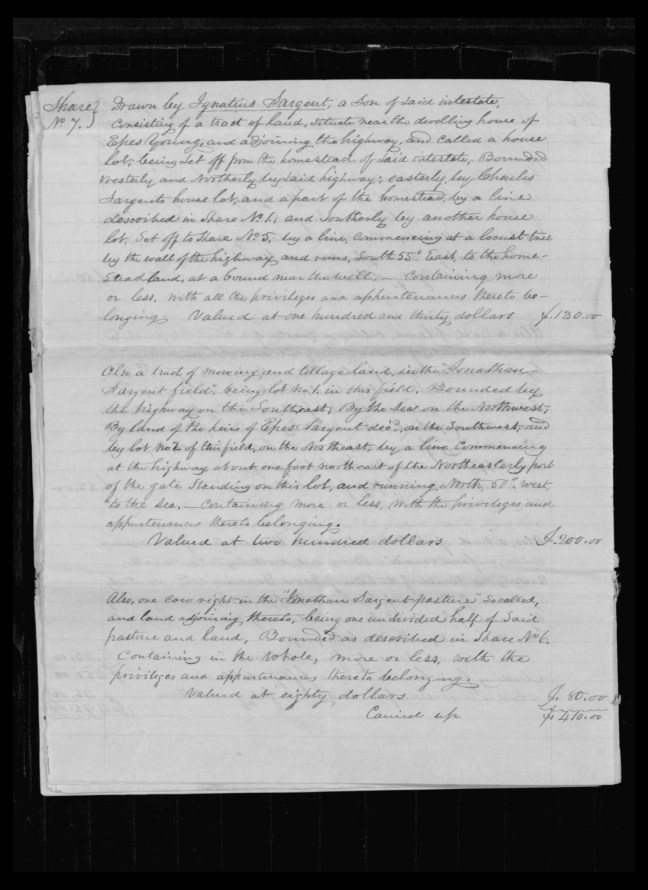 Share No 7. } Drawn by Ignatius Sargent, a Son of said intestate,
Consisting of a tract of land, situate near the dwelling house of
Epes Young, and adjoining the highway, and called a house
lot, being set off from the homestead of said intestate. Bounded
Westerly and Northerly by said highway; easterly, by Charles
Sargents house lot, and a part of the homestead, by a line
described in Share No 1, and Southerly by another house
lot, Set off to Share No 5, by a line, commencing at a locust tree
by the wall of the highway and runs, South 55° East, to the home-
stead land, at a bound near the well, — Containing more
or less, with all the privileges and appurtenances thereto be-
longing. Valued at one hundred and thirty dollars $.130.00
Also a tract of mowing and tillage land, in the "Jonathan
Sargent field", being lot No 1, in this field. Bounded by
the highway on the Southeast, By the Sea on the Northwest,
By land of the heirs of Epes Sargent decd, on the Southwest, and
by lot No 2 of this field, on the Northeast, by a line Commencing
at the highway, about one foot northeast of the Northeasterly post
of the gate Standing on this lot, and running North, 50° west,
to the Sea. — Containing more or less, with the privileges and
appurtenances thereto belonging.
Valued at two hundred dollars $.200.00
Also, one cow right in the "Jonathan Sargent pasture" So called,
and land adjoining thereto, being one undivided half of Said
pasture and land, Bounded as described in Share No 6.
Containing in the whole, more or less, with the
privileges and appurtenances thereto belonging.
Valued at eighty dollars $. 80.00
Carried up $.410.00